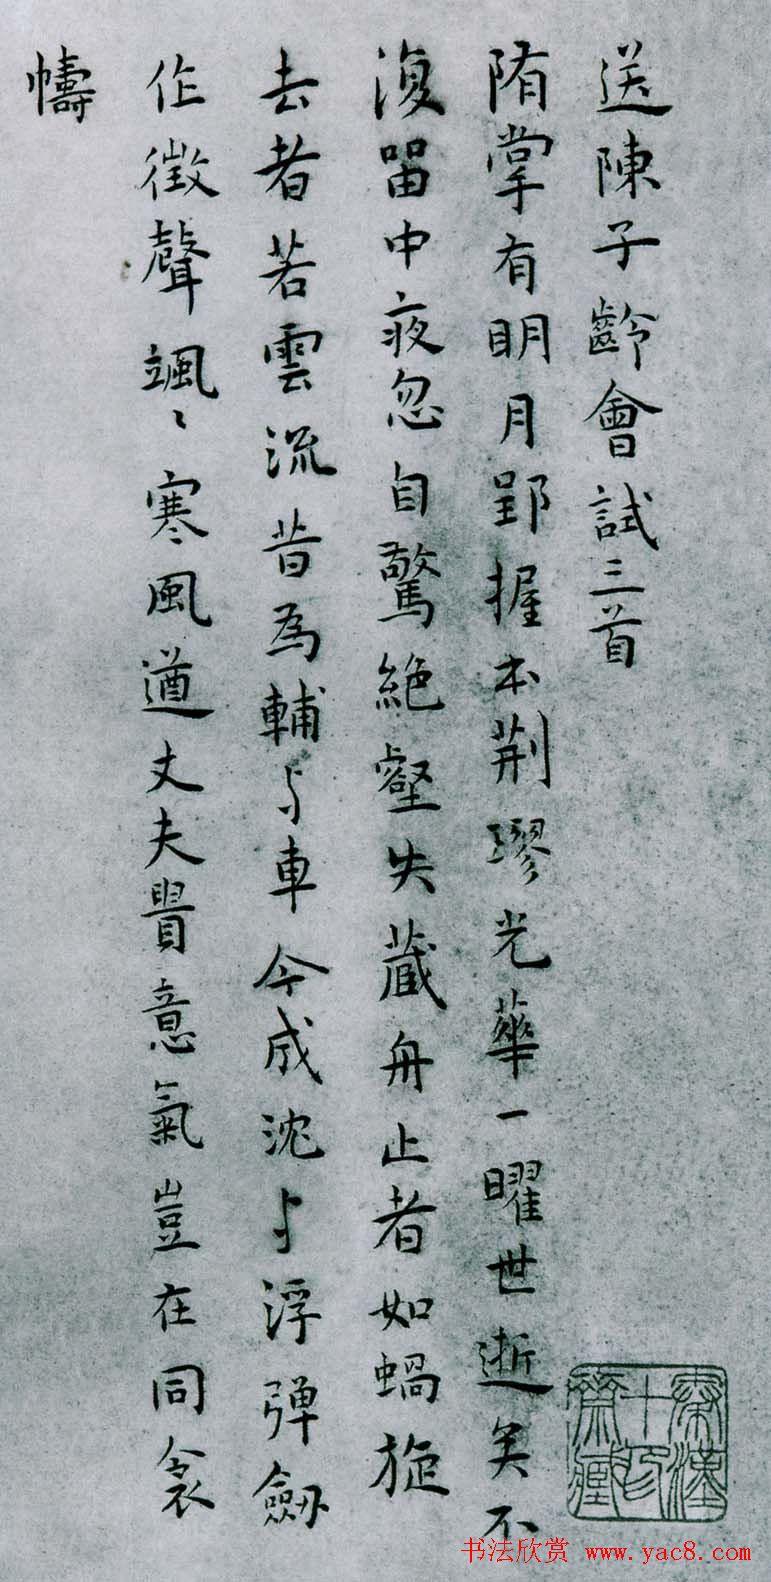 送陳子齡會試三首
隋掌有明月郢握本荆璆光華一曜世逝矣不
復留中夜忽自驚絕壑失藏舟止者如蝸旋
去者若雲流昔為輔与車今成沈与浮彈劒
作徵聲颯〻寒風遒丈夫貴意氣豈在同衾
幬
秦漢十印齋藏
书法欣赏 www.yac8.com